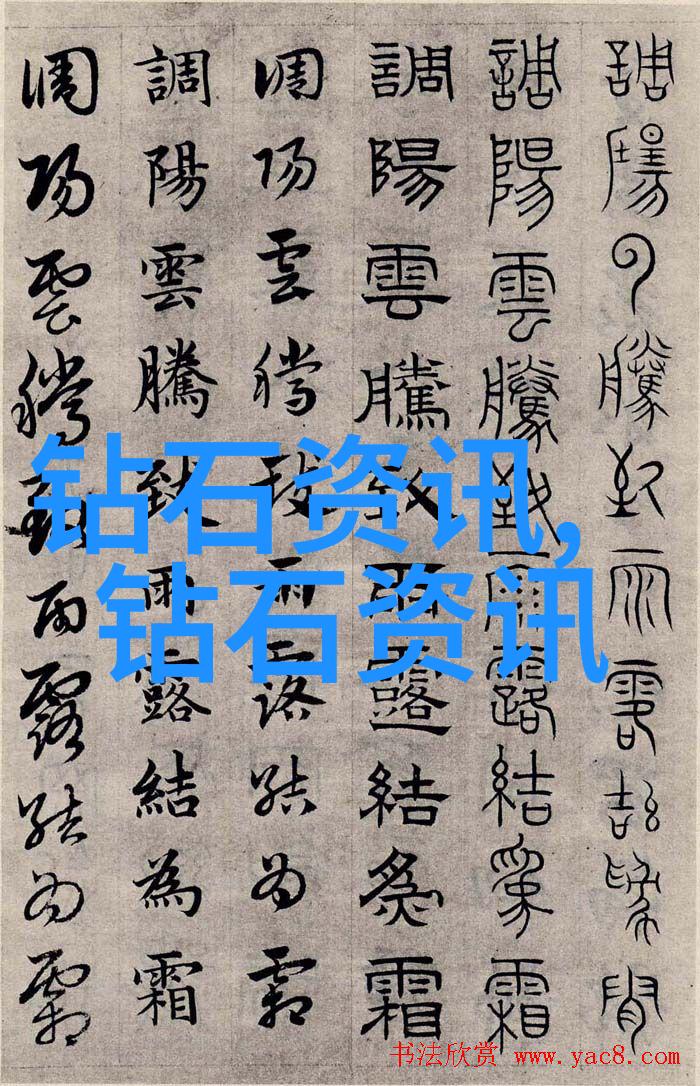 調陽雲騰致雨露結為霜
調陽雲騰致雨露結為霜
調陽雲騰致雨露結為霜
調陽雲騰致雨露結為霜
調陽雲騰致雨露結為霜
調陽雲騰致雨露結為霜
钻石资讯,
钻石资讯
书法欣赏 www.yac8.com